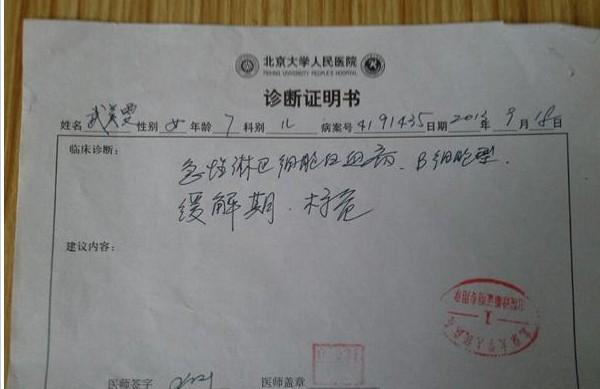 北京大学人民医院
PEKING UNIVERSITY PEOPLE'S HOSPITAL
诊断证明书
姓名 武美雯 性别 女 年龄 7 科别 儿 病案号 4191435 日期 2013 年 9 月 18 日
临床诊断：
急性淋巴细胞白血病、B细胞型.
缓解期. 标危
建议内容：
1
医师签字
医师盖章